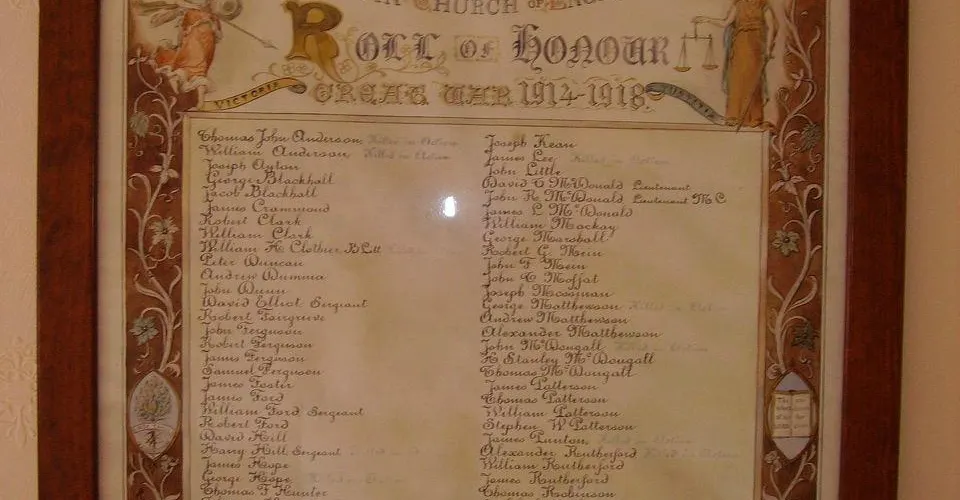 CHURCH OF
ROLL OF HONOUR
VICTORIA
GREAT WAR 1914-1918.
Thomas John Anderson Killed in Action
William Anderson Killed in Action
Joseph Ayton
George Blackhall
Jacob Blackhall
James Crammond
Robert Clark
William Clark
William H. Clothier B Lett
Peter Duncan
Andrew Dumma
John Dunn
David Elliot Sergeant
Robert Fairgrieve
John Ferguson
Robert Ferguson
James Ferguson
Samuel Ferguson
James Foster
James Ford
William Ford Sergeant
Robert Ford
David Hill
Harry Hill Sergeant
James Hope
George Hope
Thomas F Hunter
Joseph Kean
James Lee Killed in Action
John Little
David C McDonald Lieutenant
John R. McDonald Lieutenant M.C
James L McDonald
William Mackay
George Marshall
Robert G. Mein
John F. Mein
John C. Moffat
Joseph
George Matthewson Killed in Action
Andrew Matthewson
Alexander Matthewson
John McDougall Killed in Action
H Stanley McDougall
Thomas McDougall
James Patterson
Thomas Patterson
William Patterson
Stephen W Patterson
James Punton Killed in Action
Alexander Rutherford Killed in Action
William Rutherford
James Rutherford
Thomas Robinson